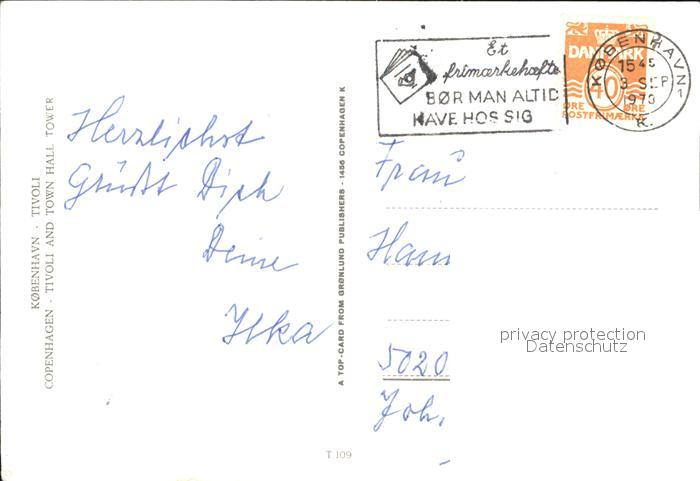 KØBENHAVN · TIVOLI
COPENHAGEN · TIVOLI AND TOWN HALL TOWER
Herzlichst
Grüßt Dich
Deine
Ilka
A TOP-CARD FROM GRØNLUND PUBLISHERS · 1456 COPENHAGEN K
T 109
Et
frimærkehæfte
BØR MAN ALTID
HAVE HOS SIG
DANMARK
40
ØRE ØRE
POSTFRIMÆRKE
KØBENHAVN
1545
3 SEP
197
K.
Frau
Ham
5020
Joh.
privacy protection
Datenschutz